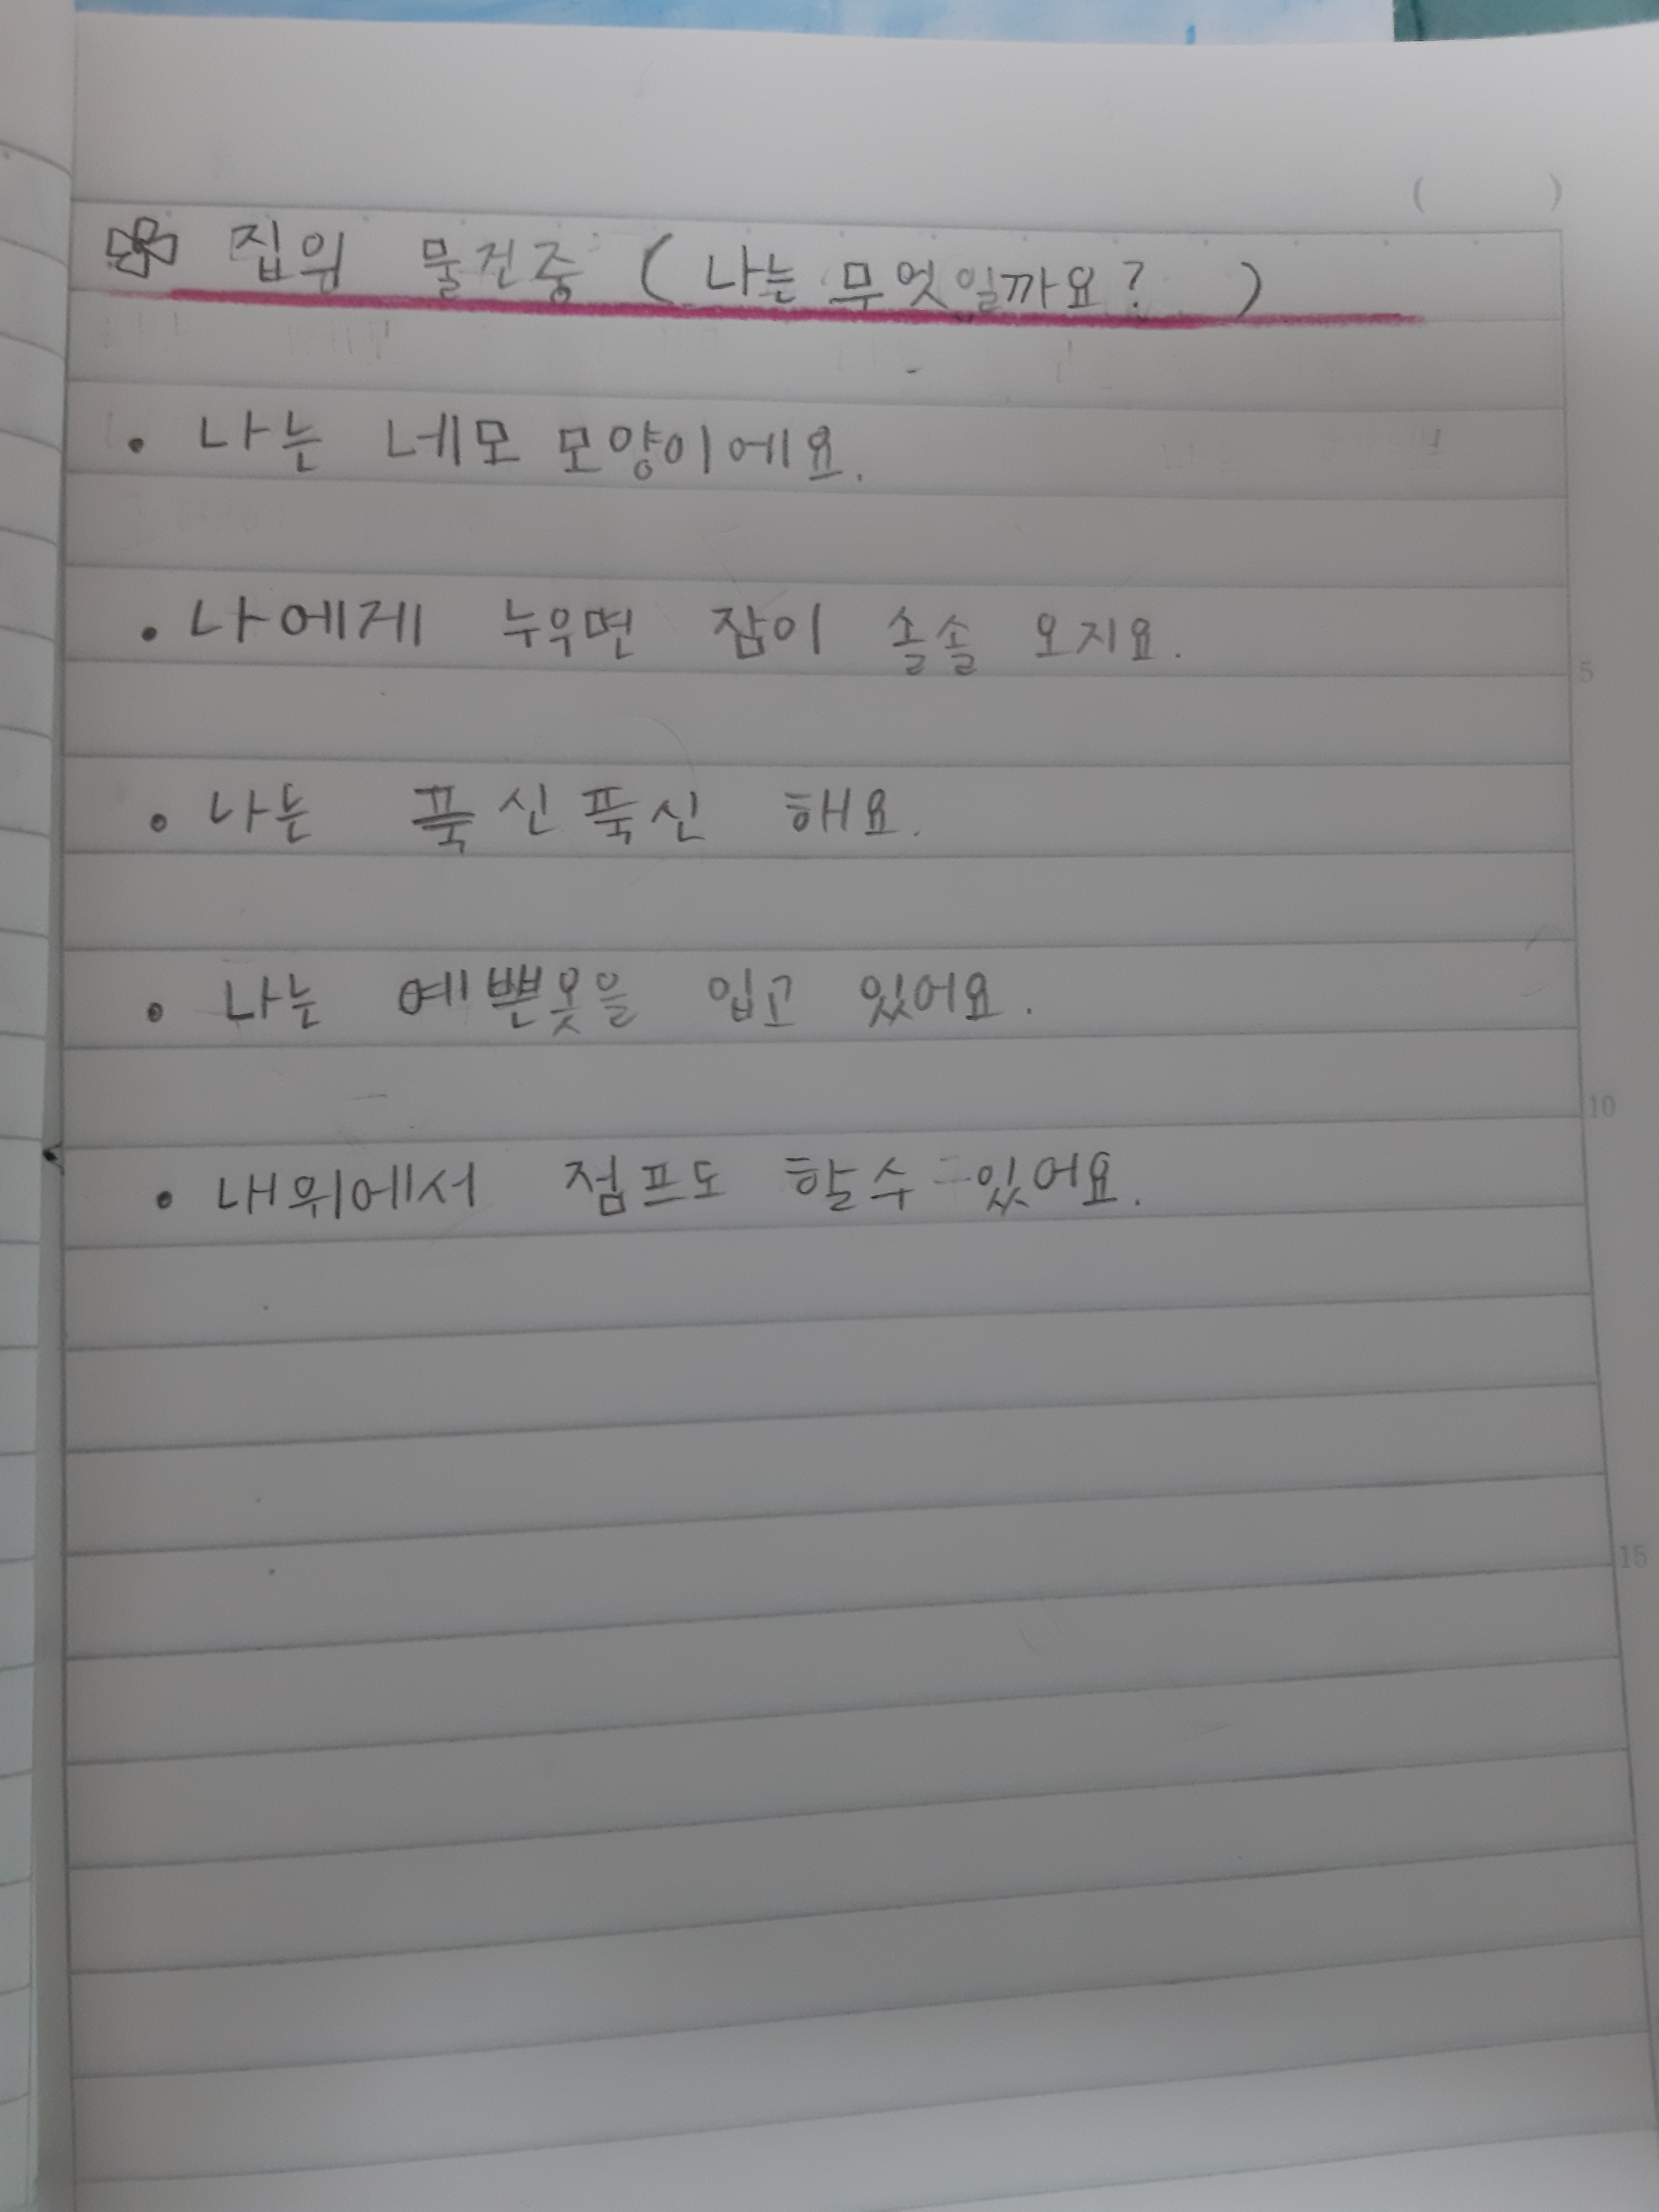 집의 물건중 (나는 무엇일까요? )
( )
• 나는 네모 모양이에요.
• 나에게 누우면 잠이 솔솔 오지요.
5
• 나는 푹신푹신 해요.
• 나는 예쁜옷을 입고 있어요.
10
• 내위에서 점프도 할수 있어요.
15